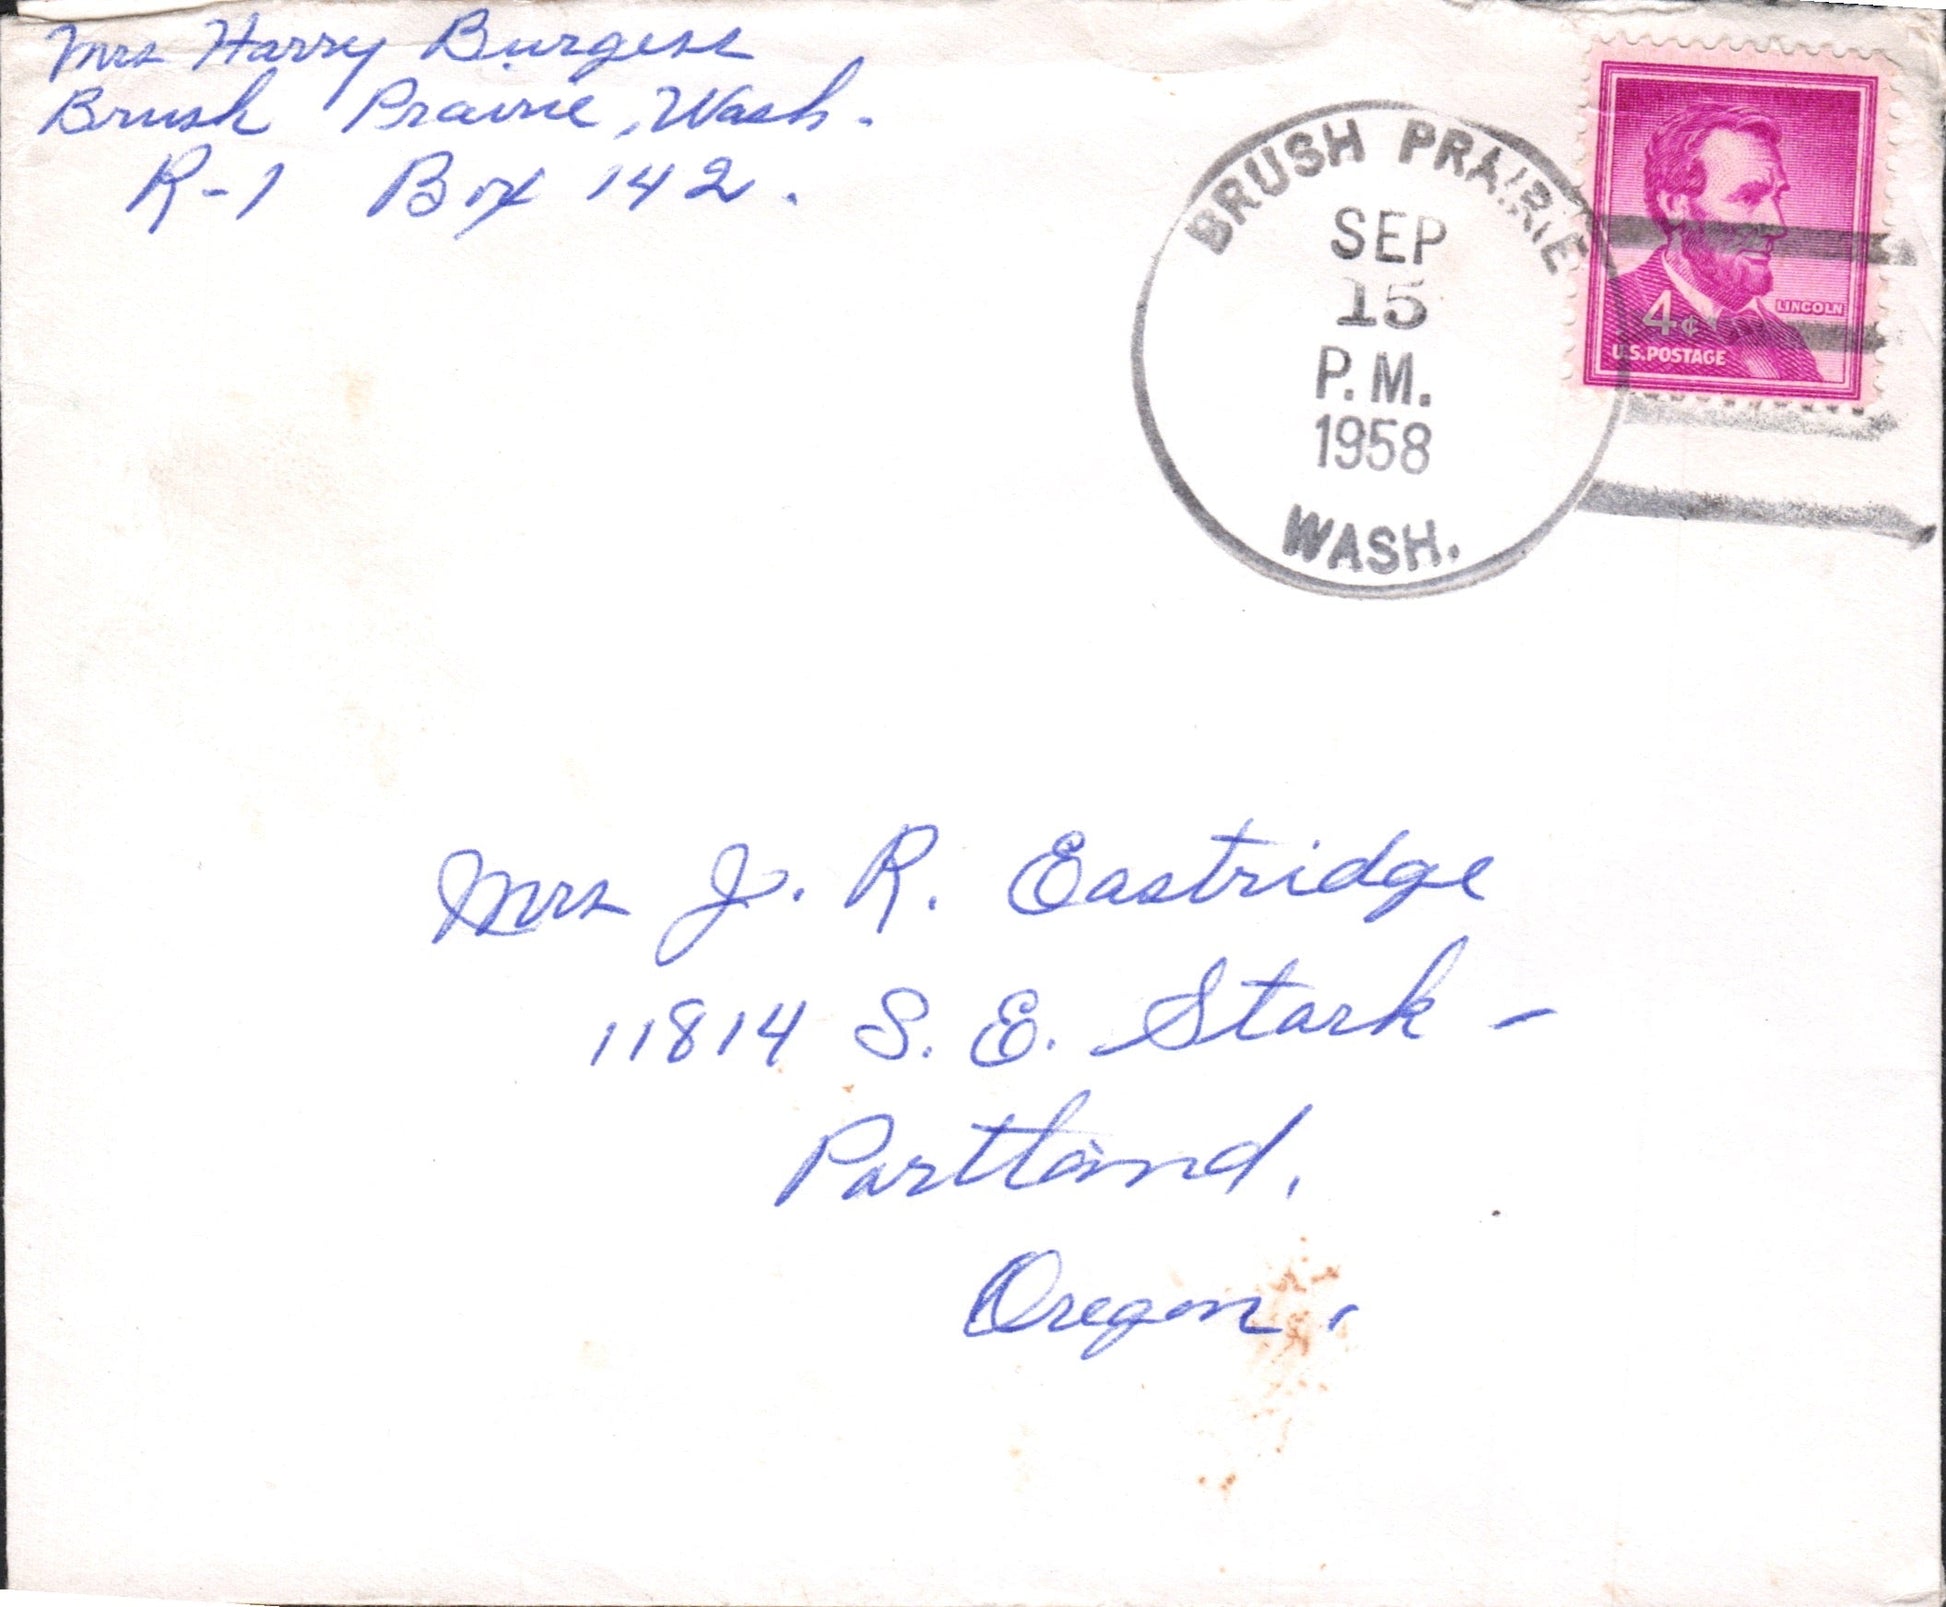 Mrs Harry Burgess
Brush Prairie, Wash.
R-1 Box 142.
BRUSH PRAIRIE
SEP
15
P.M.
1958
WASH.
LINCOLN
4¢
U.S.POSTAGE
Mrs J. R. Eastridge
11814 S. E. Stark -
Portland,
Oregon.